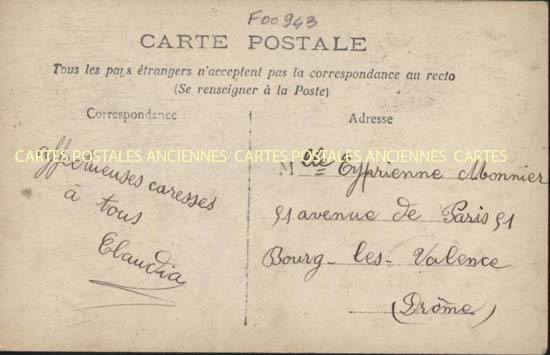 F00943
CARTE POSTALE
Tous les pays étrangers n'acceptent pas la correspondance au recto
(Se renseigner à la Poste)
Correspondance
Adresse
CARTES POSTALES ANCIENNES CARTES POSTALES ANCIENNES CARTES
affectueuses caresses
à tous
Claudia
Mlle Cyprienne Monnier
51 avenue de Paris 51
Bourg-les-Valence
(Drôme)